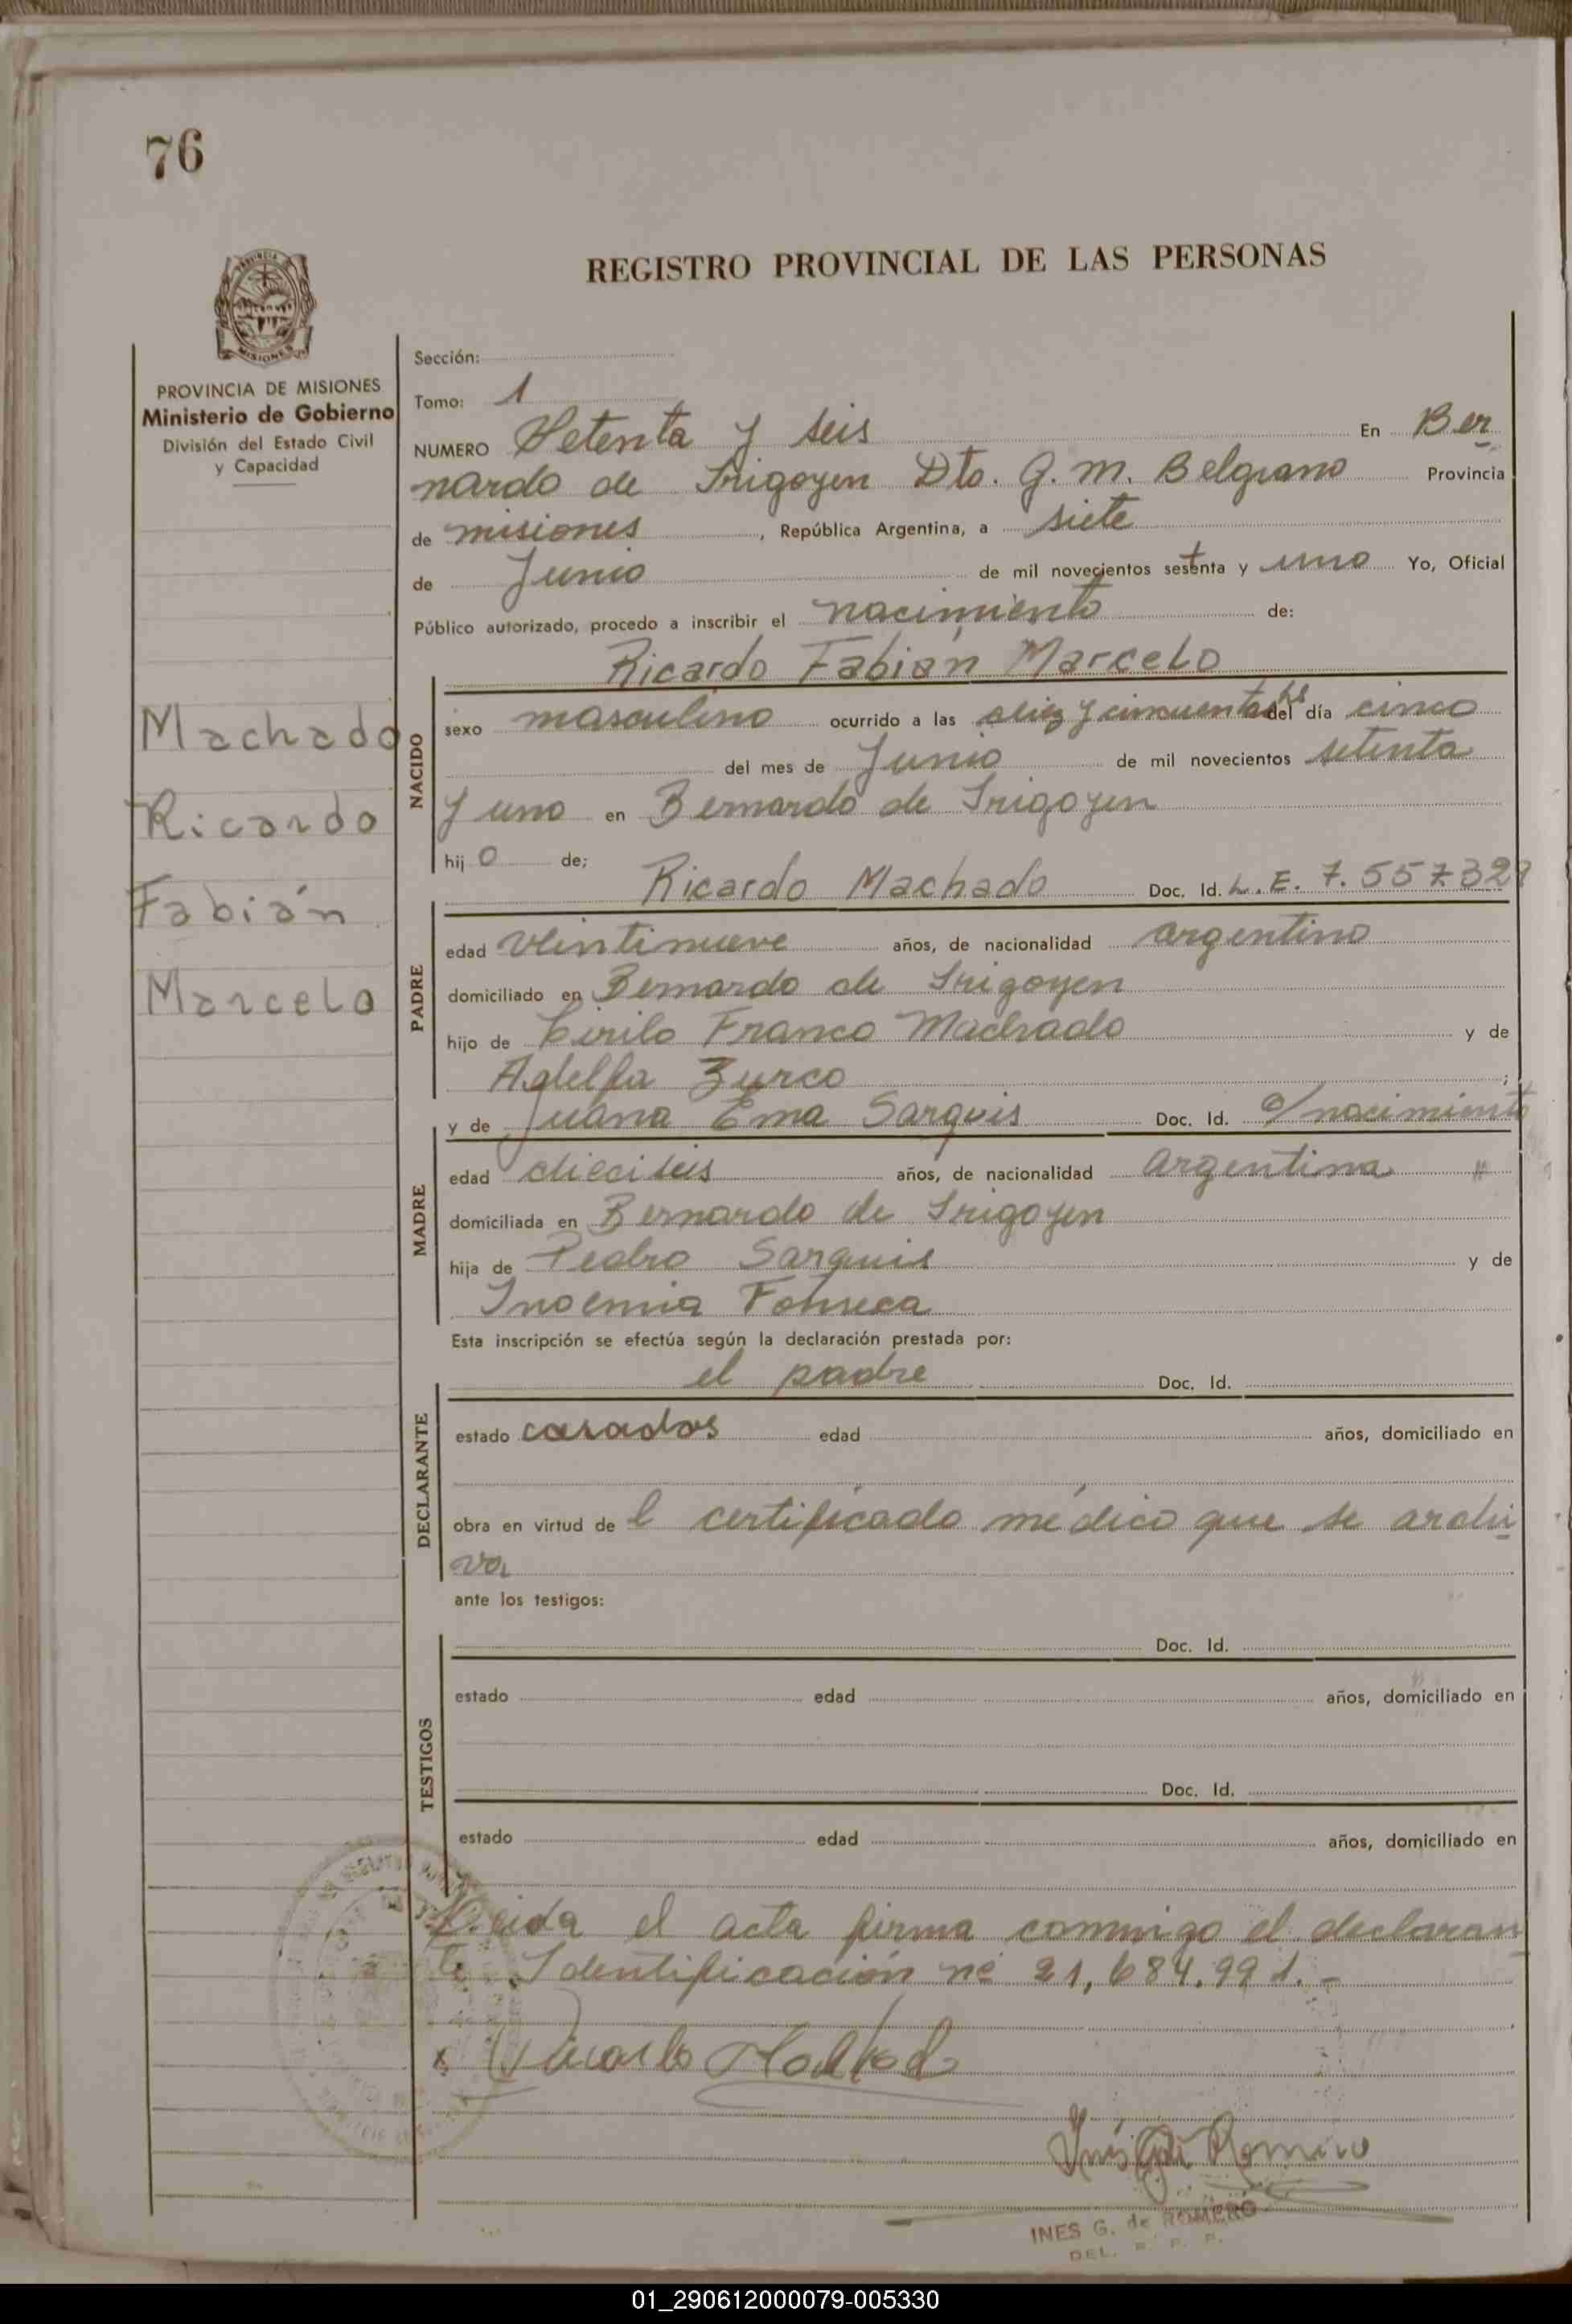 76
REGISTRO PROVINCIAL DE LAS PERSONAS
MISIONES
PROVINCIA DE MISIONES
Ministerio de Gobierno
División del Estado Civil
y Capacidad
Machado
Ricardo
Fabián
Marcelo
Sección:
Tomo: 1
NUMERO Setenta y seis En Ber
nardo de Irigoyen Dto. G. M. Belgrano Provincia
de misiones, República Argentina, a siete
de Junio de mil novecientos setenta y uno Yo, Oficial
Público autorizado, procedo a inscribir el nacimiento de:
Ricardo Fabián Marcelo
NACIDO
sexo masculino ocurrido a las diez y cincuenta hs del día cinco
del mes de Junio de mil novecientos setenta
y uno en Bernardo de Irigoyen
hijo de; Ricardo Machado Doc. Id. L. E. 7.557.329
PADRE
edad veintinueve años, de nacionalidad argentino
domiciliado en Bernardo de Irigoyen
hijo de Cirilo Franco Machado y de
Adelfa Zurco;
y de Juana Ema Sarquis Doc. Id. c/nacimiento
MADRE
edad dieciseis años, de nacionalidad argentina
domiciliada en Bernardo de Irigoyen
hija de Pedro Sarquis y de
Inoemia Fonseca
Esta inscripción se efectúa según la declaración prestada por:
el padre Doc. Id.
DECLARANTE
estado casados edad años, domiciliado en
obra en virtud de l certificado médico que se archi
va
ante los testigos:
TESTIGOS
Doc. Id.
estado edad años, domiciliado en
Doc. Id.
estado edad años, domiciliado en
Leida el acta firma conmigo el declaran
te. Identificación nº 21,684.991.-
x Ricardo Machado
Inés G. de Romero
INES G. de ROMERO
DEL. R. P. P.
01_290612000079-005330